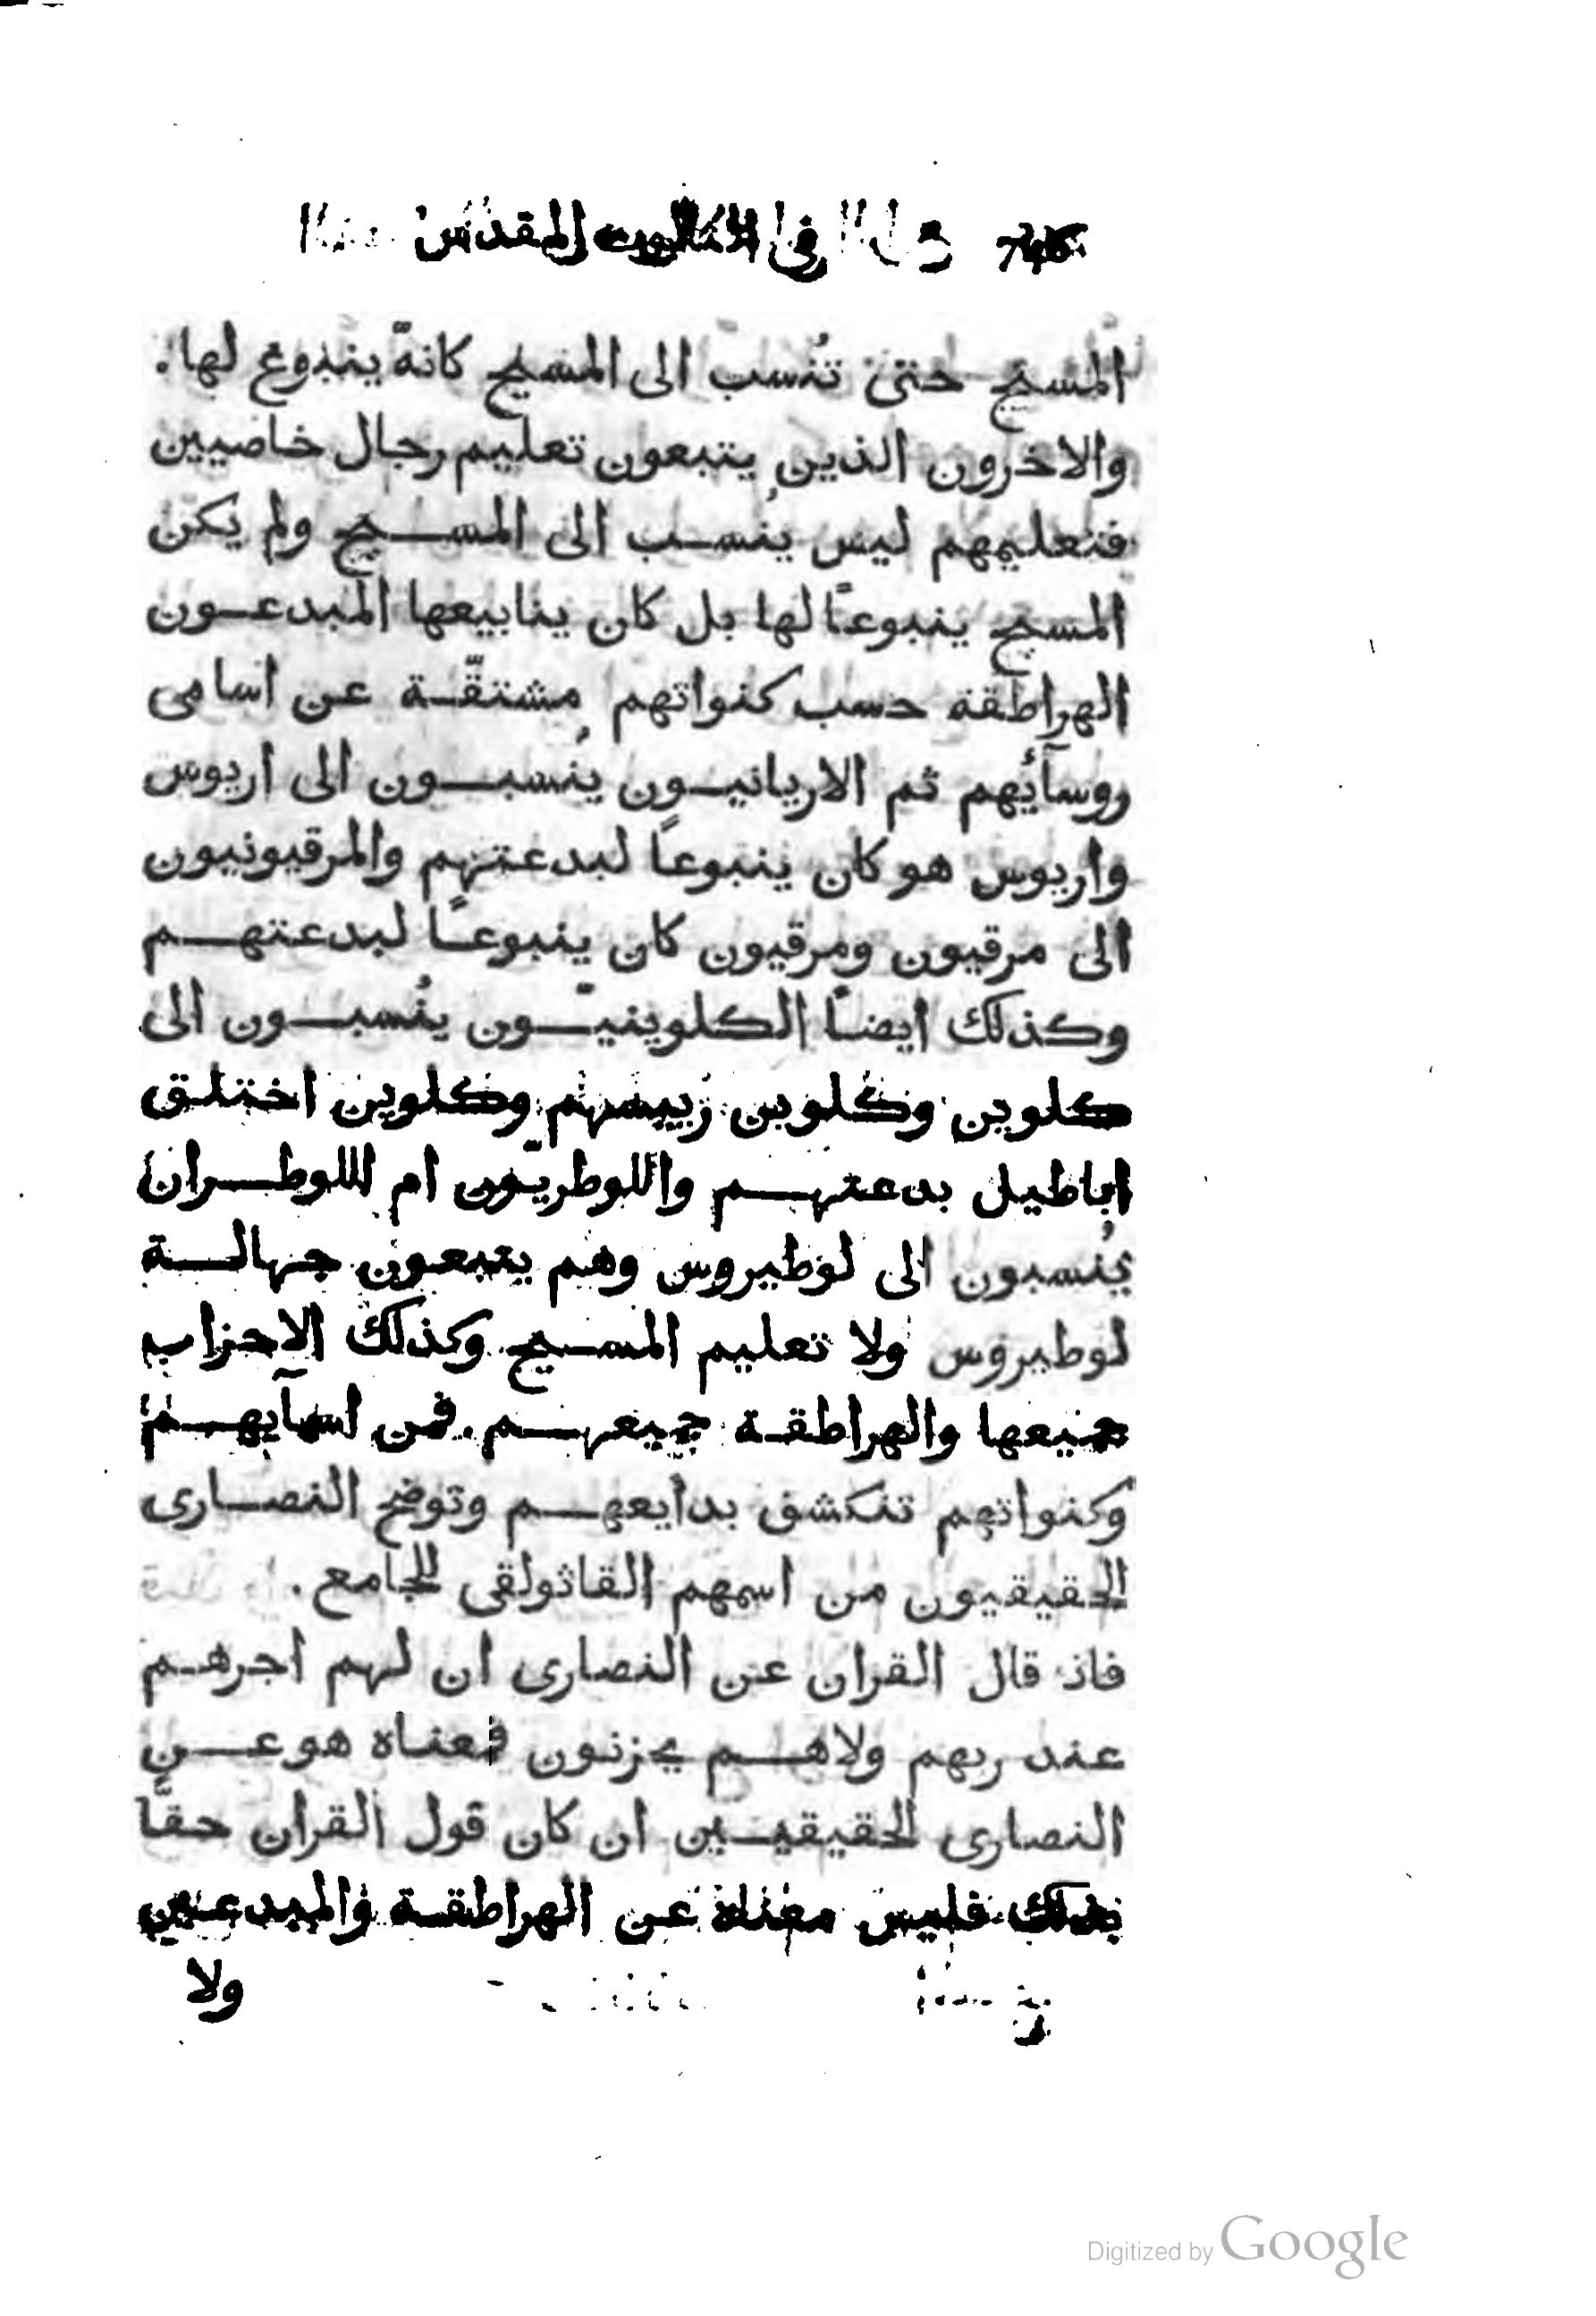 في الثالوث المقدس
المسيح حتى تُنسب الى المسيح كانهّ ينبوع لها.
والاخرون الذين يتبعون تعليم رجال خاصيين
فتعليمهم ليس يُنسب الى المسيح ولم يكن
المسيح ينبوعًا لها بل كان ينابيعها المبدعون
الهراطقة حسب كنواتهم مشتقّة عن اسامى
روسآئيهم ثم الاريانيون يُنسبون الى اريوس
واريوس هو كان ينبوعاً لبدعتهم والمرقيونيون
الى مرقيون ومرقيون كان ينبوعًا لبدعتهم
وكذلك ايضاً الكلوينيّون يُنسبون الى
كلوين وكلوين رييسهم وكلوين اختلق
اباطيل بدعتهم واللوطريّون ام اللوطران
يُنسبون الى لوطيروس وهم يتبعون جهالة
لوطيروس ولا تعليم المسيح وكذلك الاحزاب
جميعها والهراطقة جميعهم. فمن اسمآيهم
وكنواتهم تنكشف بدايعهم وتوضح النصارى
الحقيقيون من اسمهم القاثولقى الجامع.
فاذ قال القران عن النصارى ان لهم اجرهم
عند ربهم ولا هم يحزنون فمعناه هو عن
النصارى الحقيقيين ان كان قول القران حقّا
بذلك فليس معناه عن الهراطقة والمبدعين
ولا
Digitized by Google